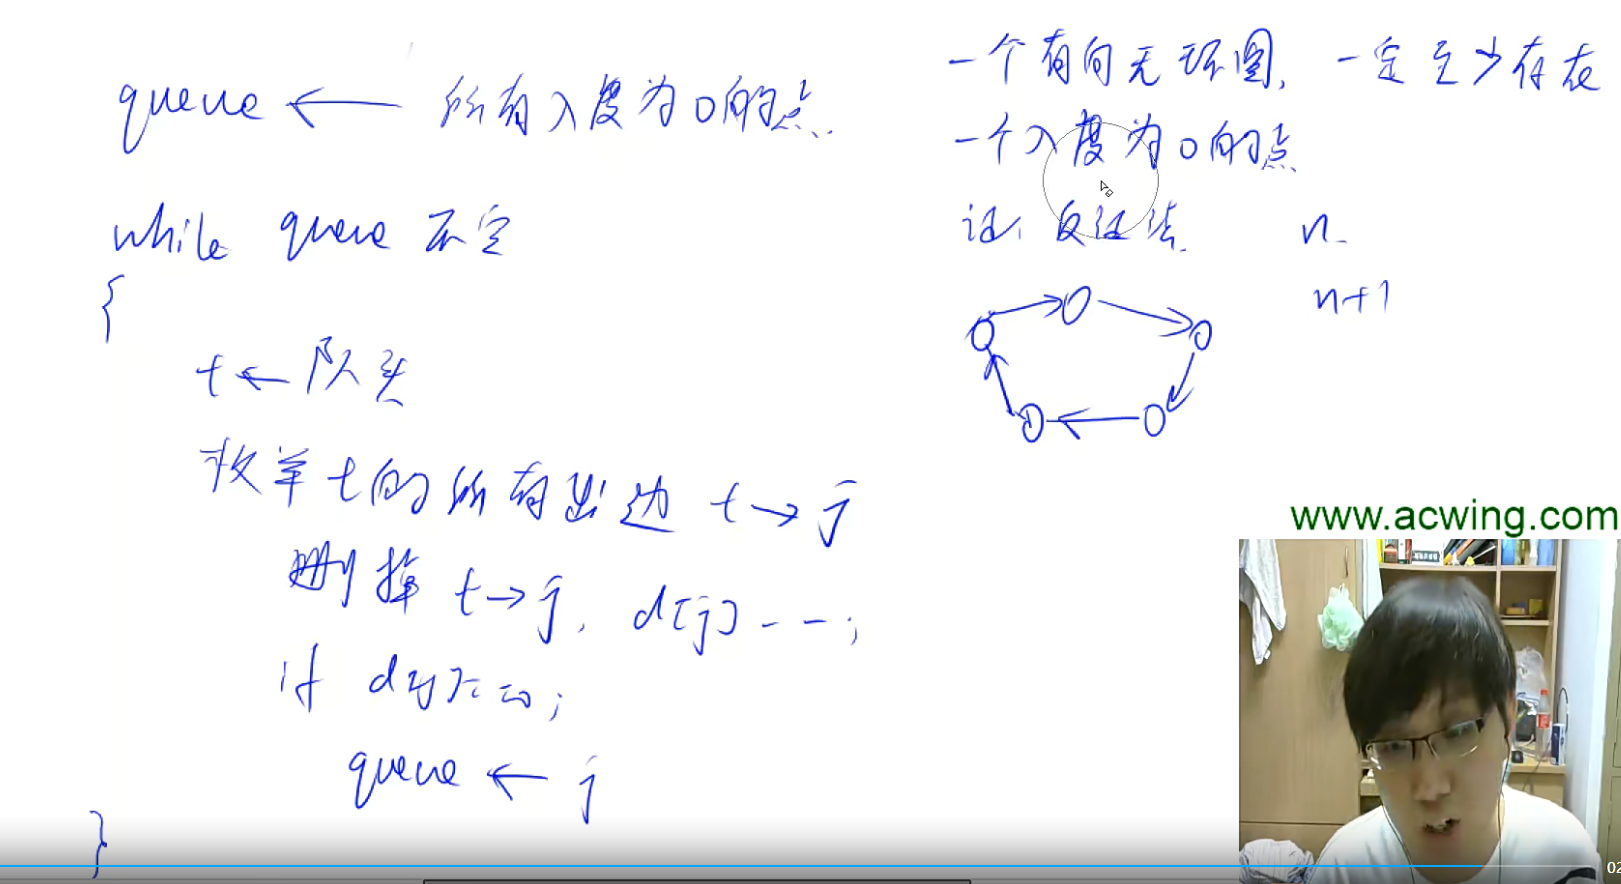 queue ← 所有入度为0的点.
while queue 不空
{
t ← 队头
枚举 t 的所有出边 t → j
删掉 t → j, d[j]--;
if d[j]==0;
queue ← j
}
一个有向无环图, 一定至少存在
一个入度为0的点
证: 反证法
n
n+1
www.acwing.com
02